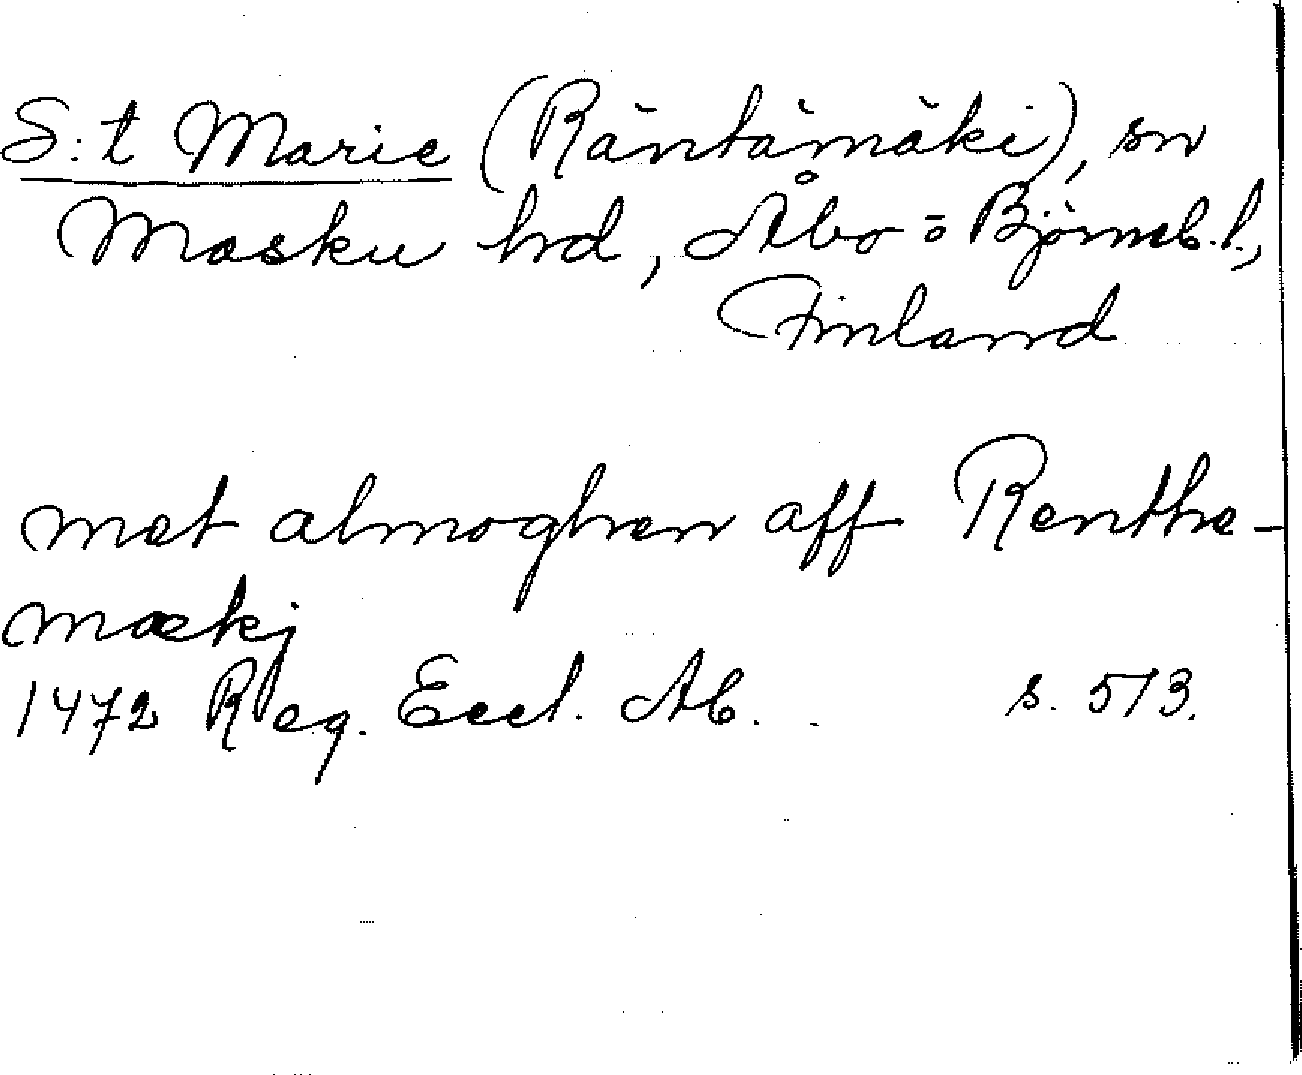 S:t Marie (Räntämäki), sn
Masku hd, Åbo o Björneb. l.,
Finland
met almoghen aff Renthe-
mækj
1472 Reg. Eccl. Ab. s. 573.